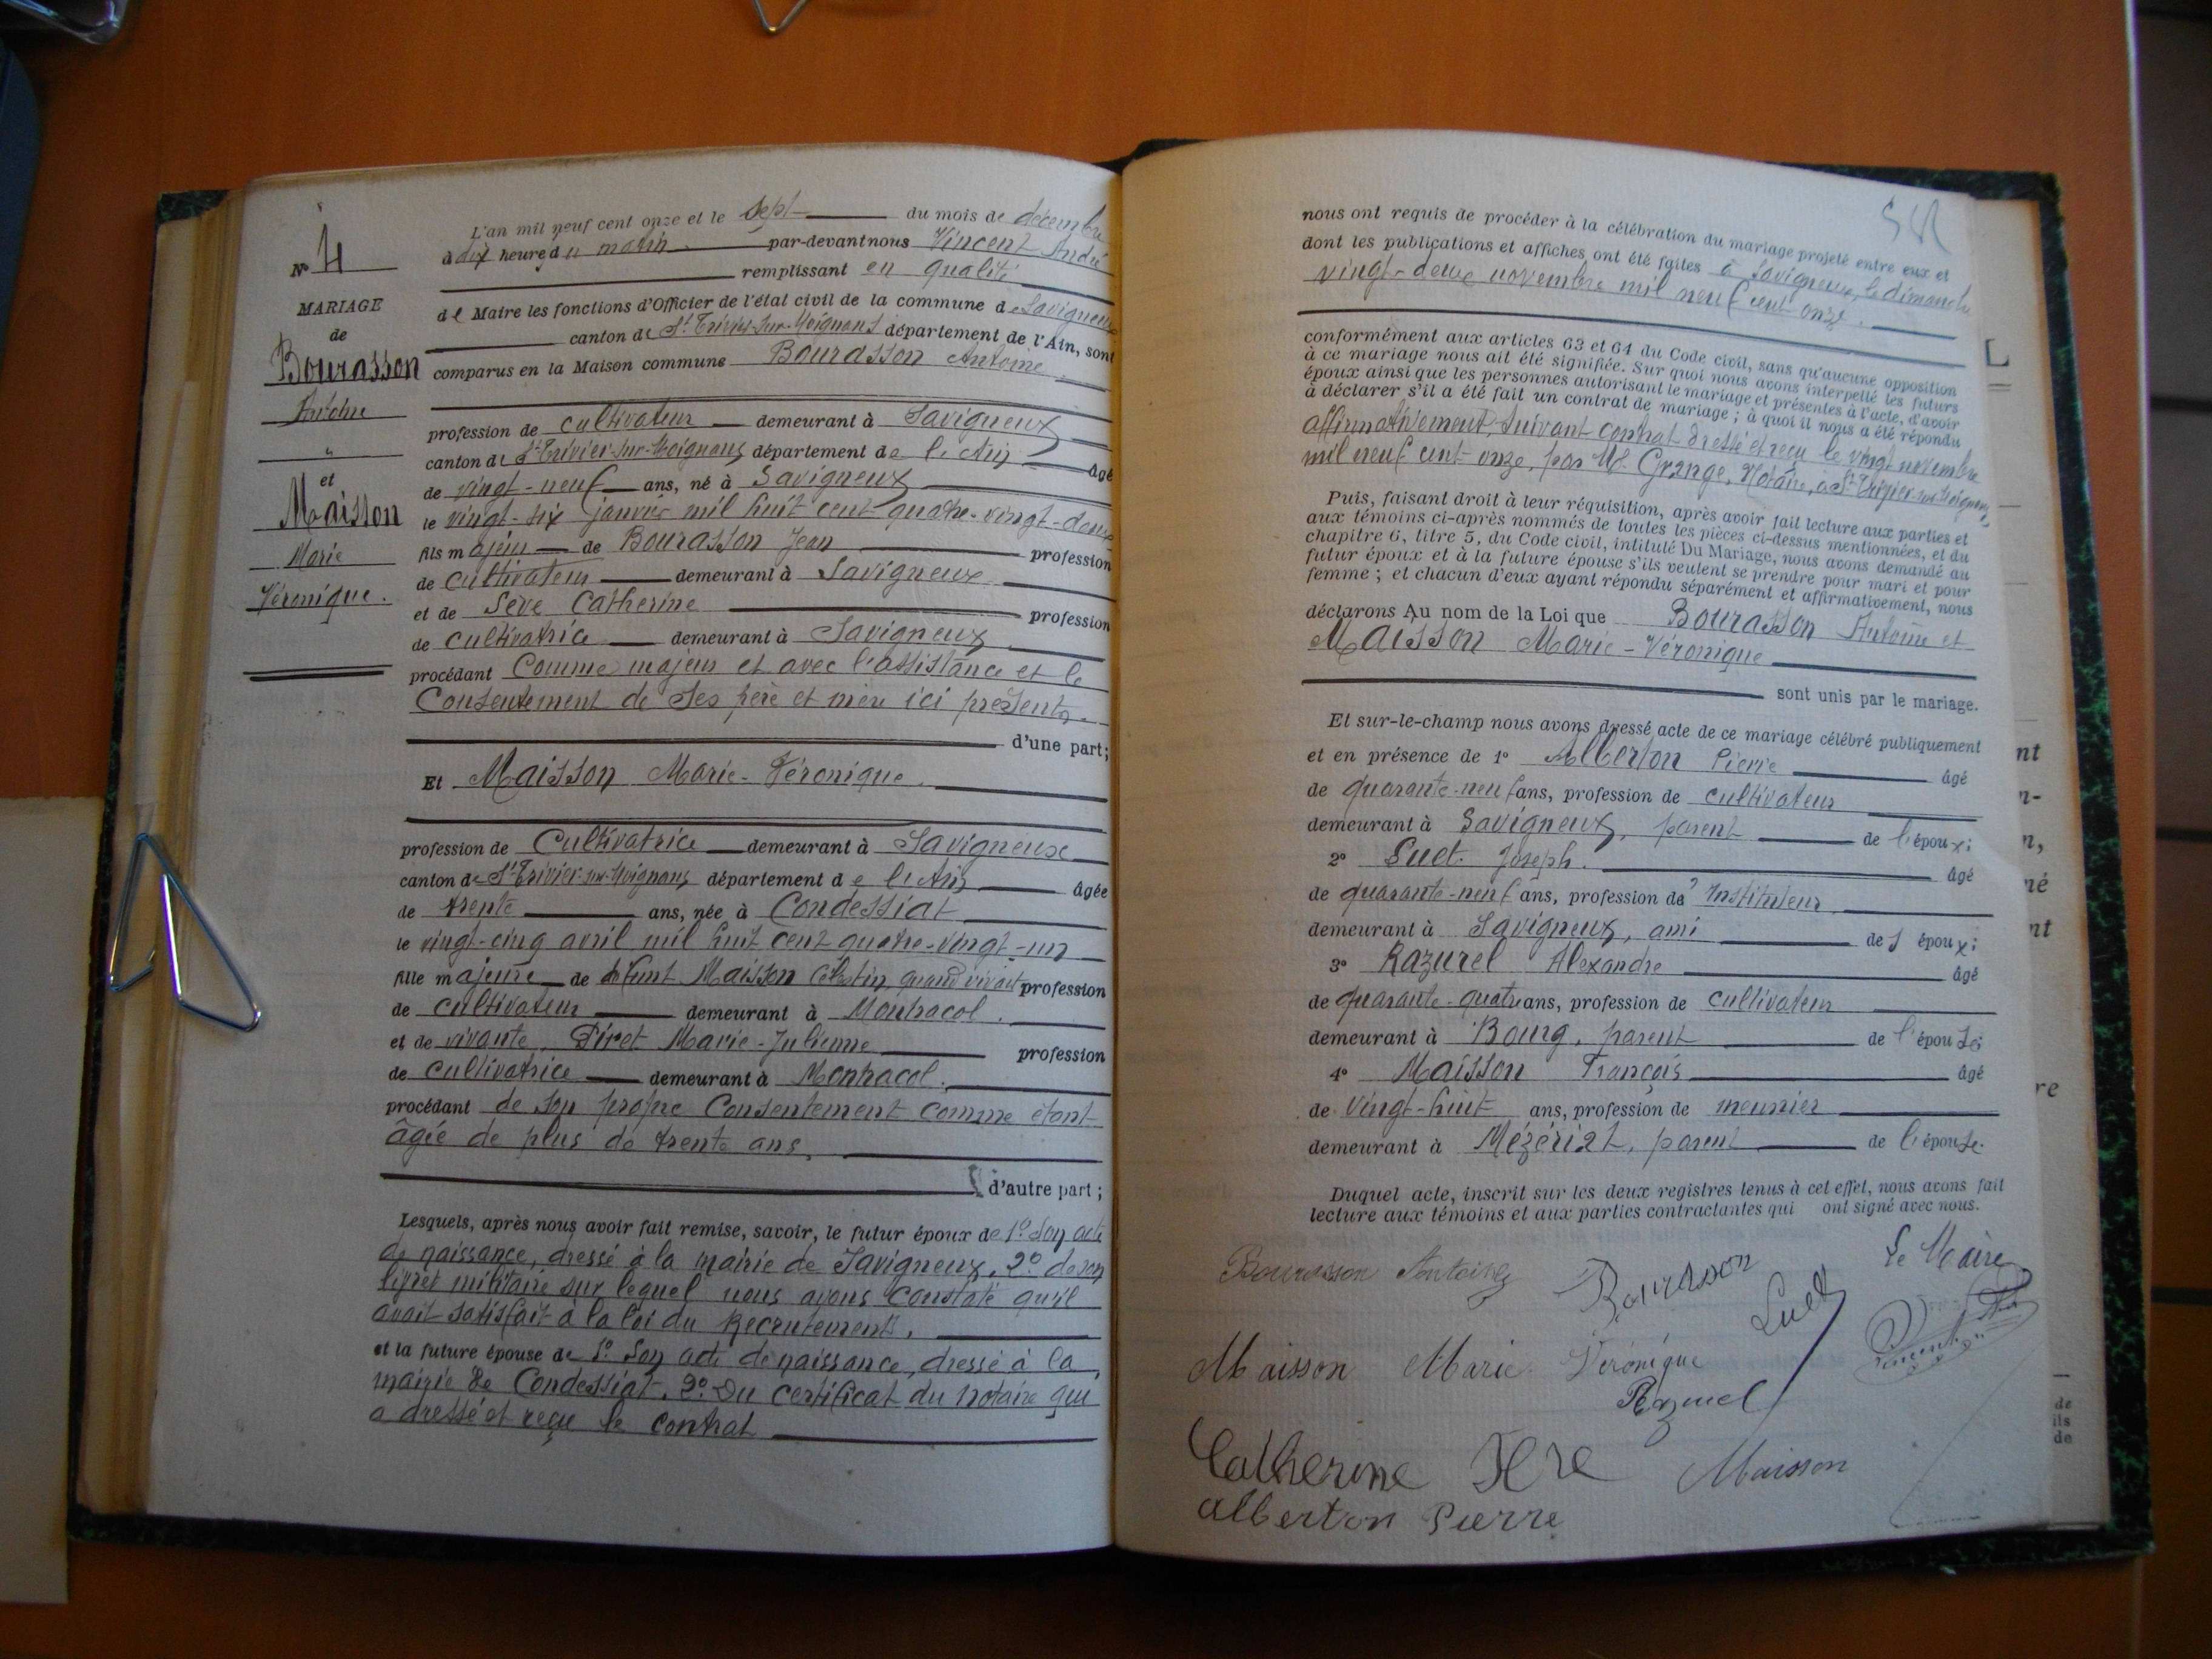 N° 4
MARIAGE
de
Bourasson
Antoine
"
et
Maisson
Marie
Véronique.
L'an mil neuf cent onze et le sept du mois de décembre
à dix heures du matin par-devant nous Vincent André
remplissant en qualité
de Maire les fonctions d'Officier de l'état civil de la commune de Savigneux
canton de St Trivier-sur-Moignans département de l'Ain, sont
comparus en la Maison commune Bourasson Antoine
profession de cultivateur demeurant à Savigneux
canton de St-Trivier-sur-Moignans département de l'Ain âgé
de vingt-neuf ans, né à Savigneux
le vingt-six janvier mil huit cent quatre-vingt-deux
fils majeur de Bourasson Jean profession
de cultivateur demeurant à Savigneux
et de Sève Catherine profession
de cultivatrice demeurant à Savigneux
procédant Comme majeur et avec l'assistance et le
Consentement de ses père et mère ici présents.
d'une part;
Et Maisson Marie-Véronique.
profession de Cultivatrice demeurant à Savigneux
canton de St-Trivier-sur-Moignans département de l'Ain âgée
de trente ans, née à Condessiat
le vingt-cinq avril mil huit cent quatre-vingt-un
fille majeure de défunt Maisson Célestin, quand vivait profession
de cultivateur demeurant à Montracol.
et de vivante, Piret Marie-Julienne profession
de cultivatrice demeurant à Montracol.
procédant de son propre Consentement comme étant
âgée de plus de trente ans,
d'autre part;
Lesquels, après nous avoir fait remise, savoir, le futur époux de 1° Son acte
de naissance, dressé à la mairie de Savigneux, 2° de son
livret militaire sur lequel nous avons Constaté qu'il
avait satisfait à la loi du Recrutement,
et la future épouse de 1° Son acte de naissance, dressé à la
mairie de Condessiat, 2° Du certificat du notaire qui
a dressé et reçu le contrat
nous ont requis de procéder à la célébration du mariage projeté entre eux et
dont les publications et affiches ont été faites à Savigneux, le dimanche
vingt-deux novembre mil neuf cent onze.
conformément aux articles 63 et 64 du Code civil, sans qu'aucune opposition
à ce mariage nous ait été signifiée. Sur quoi nous avons interpellé les futurs
époux ainsi que les personnes autorisant le mariage et présentes à l'acte, d'avoir
à déclarer s'il a été fait un contrat de mariage; à quoi il nous a été répondu
affirmativement, suivant contrat dressé et reçu le vingt novembre
mil neuf cent onze, par Me Grange, Notaire, à St-Trivier-sur-Moignans,
Puis, faisant droit à leur réquisition, après avoir fait lecture aux parties et
aux témoins ci-après nommés de toutes les pièces ci-dessus mentionnées, et du
chapitre 6, titre 5, du Code civil, intitulé Du Mariage, nous avons demandé au
futur époux et à la future épouse s'ils veulent se prendre pour mari et pour
femme; et chacun d'eux ayant répondu séparément et affirmativement, nous
déclarons Au nom de la Loi que Bourasson Antoine et
Maisson Marie-Véronique
sont unis par le mariage.
Et sur-le-champ nous avons dressé acte de ce mariage célébré publiquement
et en présence de 1° Alberton Pierre âgé
de quarante-neuf ans, profession de cultivateur
demeurant à Savigneux, parent de l'époux;
2° Suet Joseph. âgé
de quarante-neuf ans, profession de Instituteur
demeurant à Savigneux, ami des époux;
3° Razurel Alexandre âgé
de quarante-quatre ans, profession de cultivateur
demeurant à Bourg, parent de l'épouse;
4° Maisson François âgé
de vingt-huit ans, profession de meunier
demeurant à Mézériat, parent de l'épouse.
Duquel acte, inscrit sur les deux registres tenus à cet effet, nous avons fait
lecture aux témoins et aux parties contractantes qui ont signé avec nous.
Bourasson Antoine Bourasson Suet Le Maire
Maisson Marie Véronique
Razurel Vincent
Catherine Maisson
Alberton Pierre